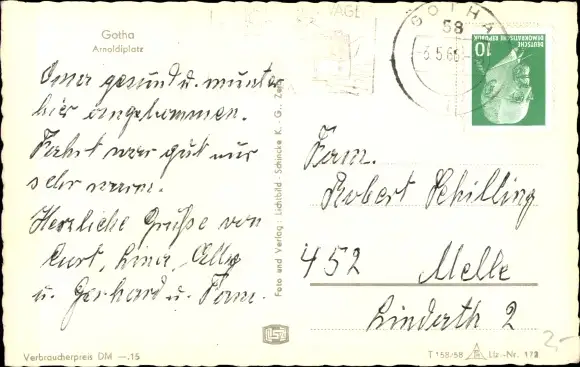 Gotha
Arnoldiplatz
Oma gesund u. munter
hier angekommen.
Fahrt war gut nur
sehr warm.
Herzliche Grüße von
Kurt, Lina, Elly
u. Gerhard u. Fam.
Verbraucherpreis DM —.15
Foto und Verlag: Lichtbild-Schincke K.-G., Zeitz
GOTHA
58
5.66
DEUTSCHE
DEMOKRATISCHE REPUBLIK
10
Fam.
Robert Schilling
452 Melle
Lindath 2
T 158/58 Liz.-Nr. 172
2,-